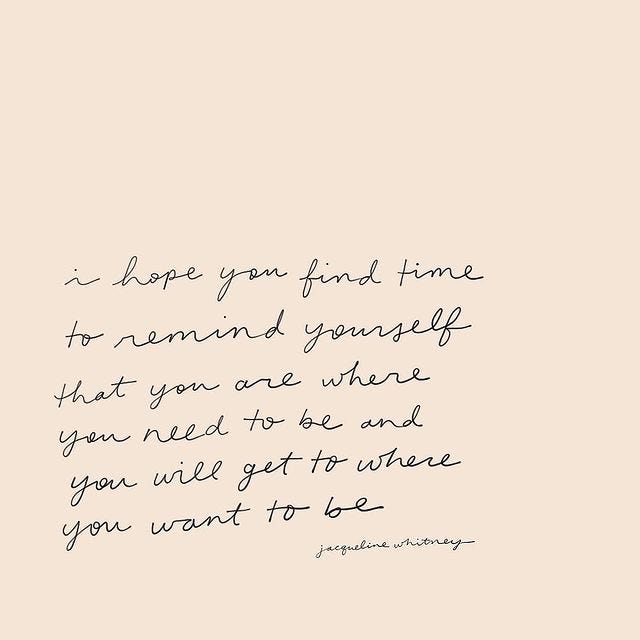 i hope you find time
to remind yourself
that you are where
you need to be and
you will get to where
you want to be
jacqueline whitney